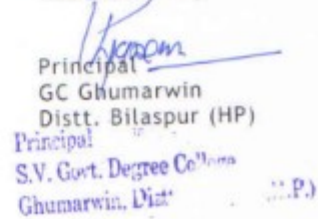 Principal
GC Ghumarwin
Distt. Bilaspur (HP)
Principal
S.V. Govt. Degree College
Ghumarwin, Distt. P.)